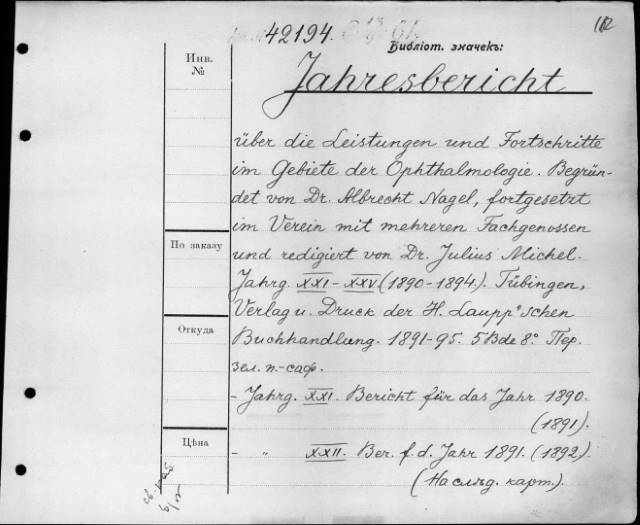 42194.
112
Библіот. значекъ:
Инв. №
Jahresbericht
über die Leistungen und Fortschritte
im Gebiete der Ophthalmologie. Begrün-
det von Dr. Albrecht Nagel, fortgesetzt
im Verein mit mehreren Fachgenossen
По заказу
und redigiert von Dr. Julius Michel.
Jahrg. XXI–XXV (1890–1894). Tübingen,
Verlag u. Druck der H. Laupp'schen
Откуда
Buchhandlung. 1891–95. 5 Bde 8°. Пер.
зел. п.-саф.
- Jahrg. XXI. Bericht für das Jahr 1890.
(1891).
Цѣна
- " XXII. Ber. f. d. Jahr 1891. (1892)
(На слѣд. карт.).